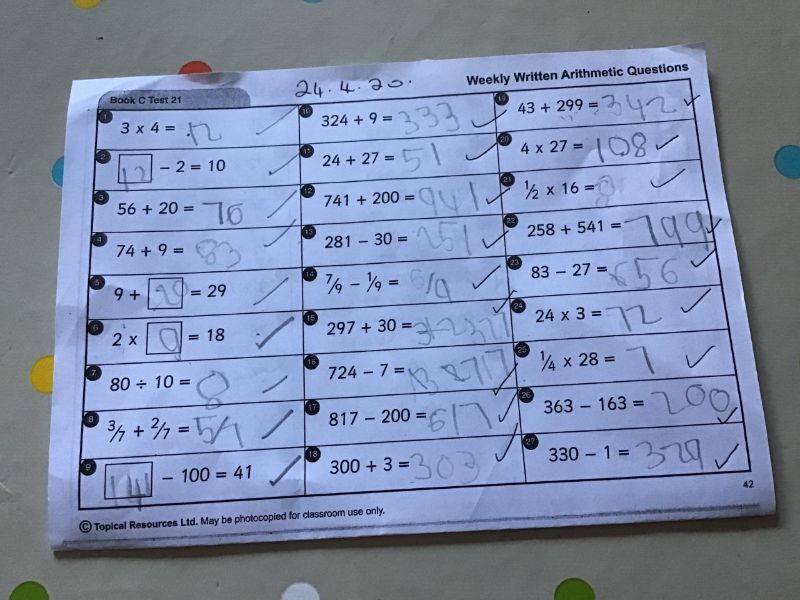 Book C Test 21
24.4.20.
Weekly Written Arithmetic Questions
1 3 x 4 = 12
2 12 − 2 = 10
3 56 + 20 = 76
4 74 + 9 = 83
5 9 + 20 = 29
6 2 x 9 = 18
7 80 ÷ 10 = 8
8 3/7 + 2/7 = 5/7
9 141 − 100 = 41
10 324 + 9 = 333
11 24 + 27 = 51
12 741 + 200 = 941
13 281 − 30 = 251
14 7/9 − 1/9 = 6/9
15 297 + 30 =
16 724 − 7 =
17 817 − 200 = 617
18 300 + 3 = 303
19 43 + 299 = 342
20 4 x 27 = 108
21 1/2 x 16 = 8
22 258 + 541 = 799
23 83 − 27 = 56
24 24 x 3 = 72
25 1/4 x 28 = 7
26 363 − 163 = 200
27 330 − 1 = 329
42
© Topical Resources Ltd. May be photocopied for classroom use only.